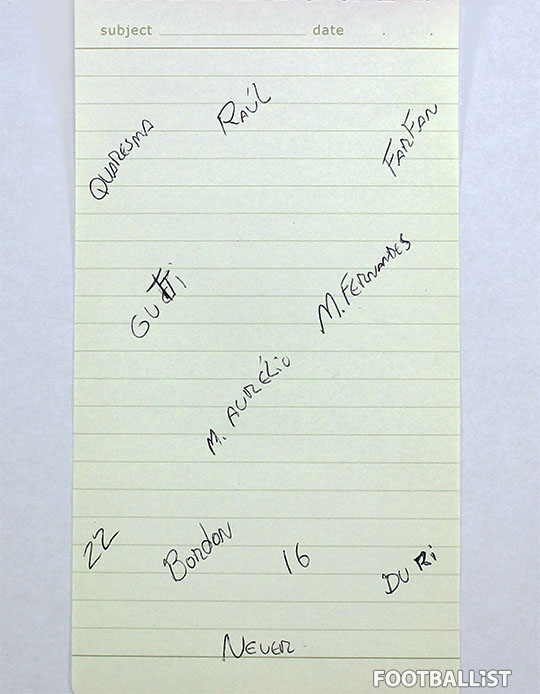 subject date
RAÚL
QUARESMA
FARFAN
GUTTI
M. FERNANDES
M. AURÉLIO
22
Bordon
16
DU RI
NEUER
FOOTBALLiST